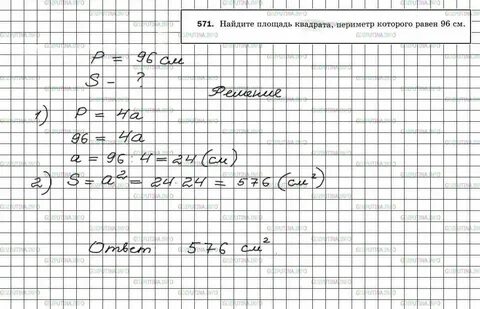 571. Найдите площадь квадрата, периметр которого равен 96 см.
P = 96 см
S - ?
Решение
1) P = 4a
96 = 4a
a = 96 : 4 = 24 (см)
2) S = a² = 24·24 = 576 (см²)
Ответ 576 см²